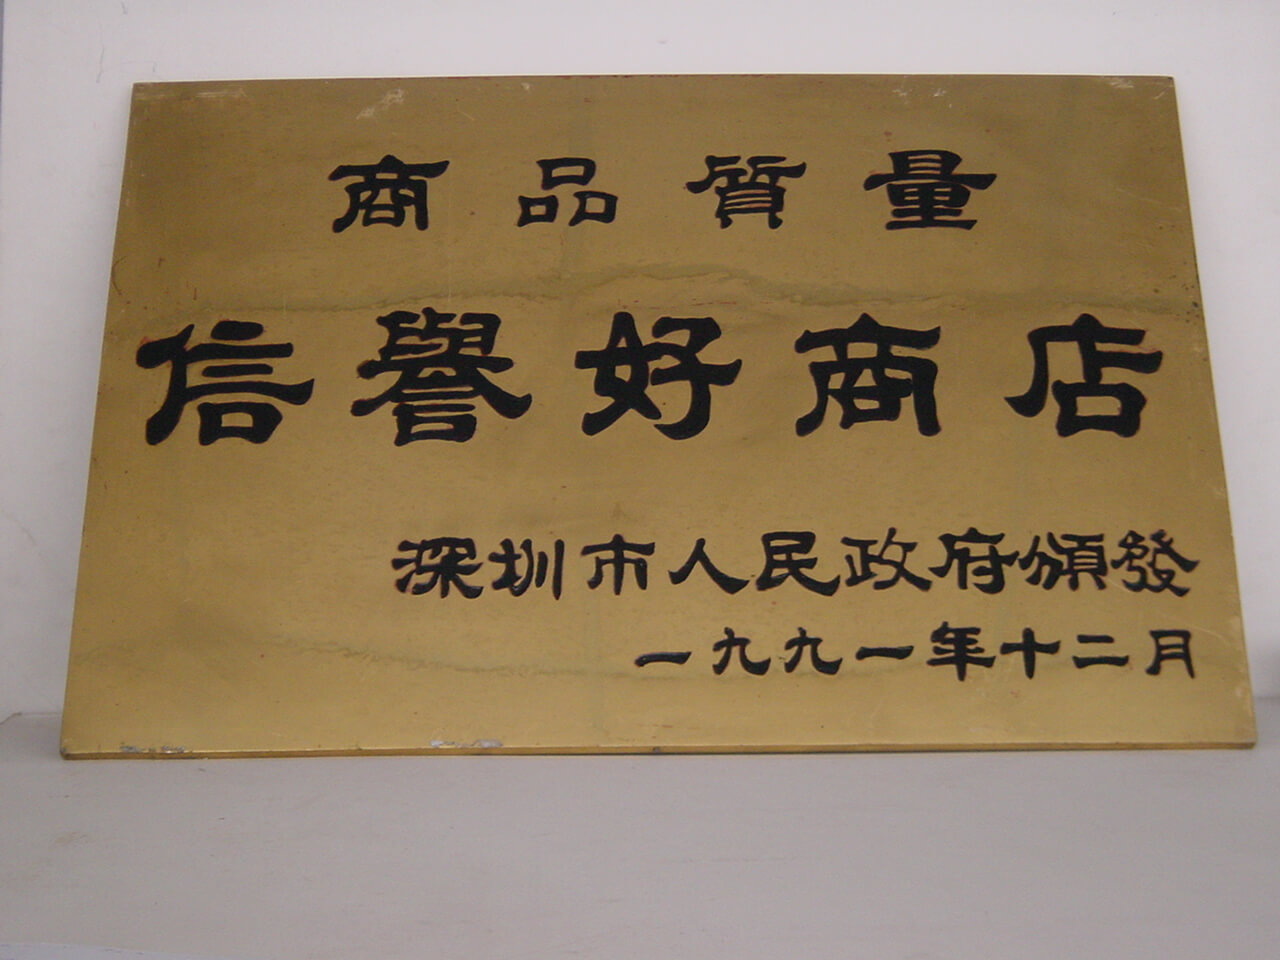 商品質量
信譽好商店
深圳市人民政府頒發
一九九一年十二月